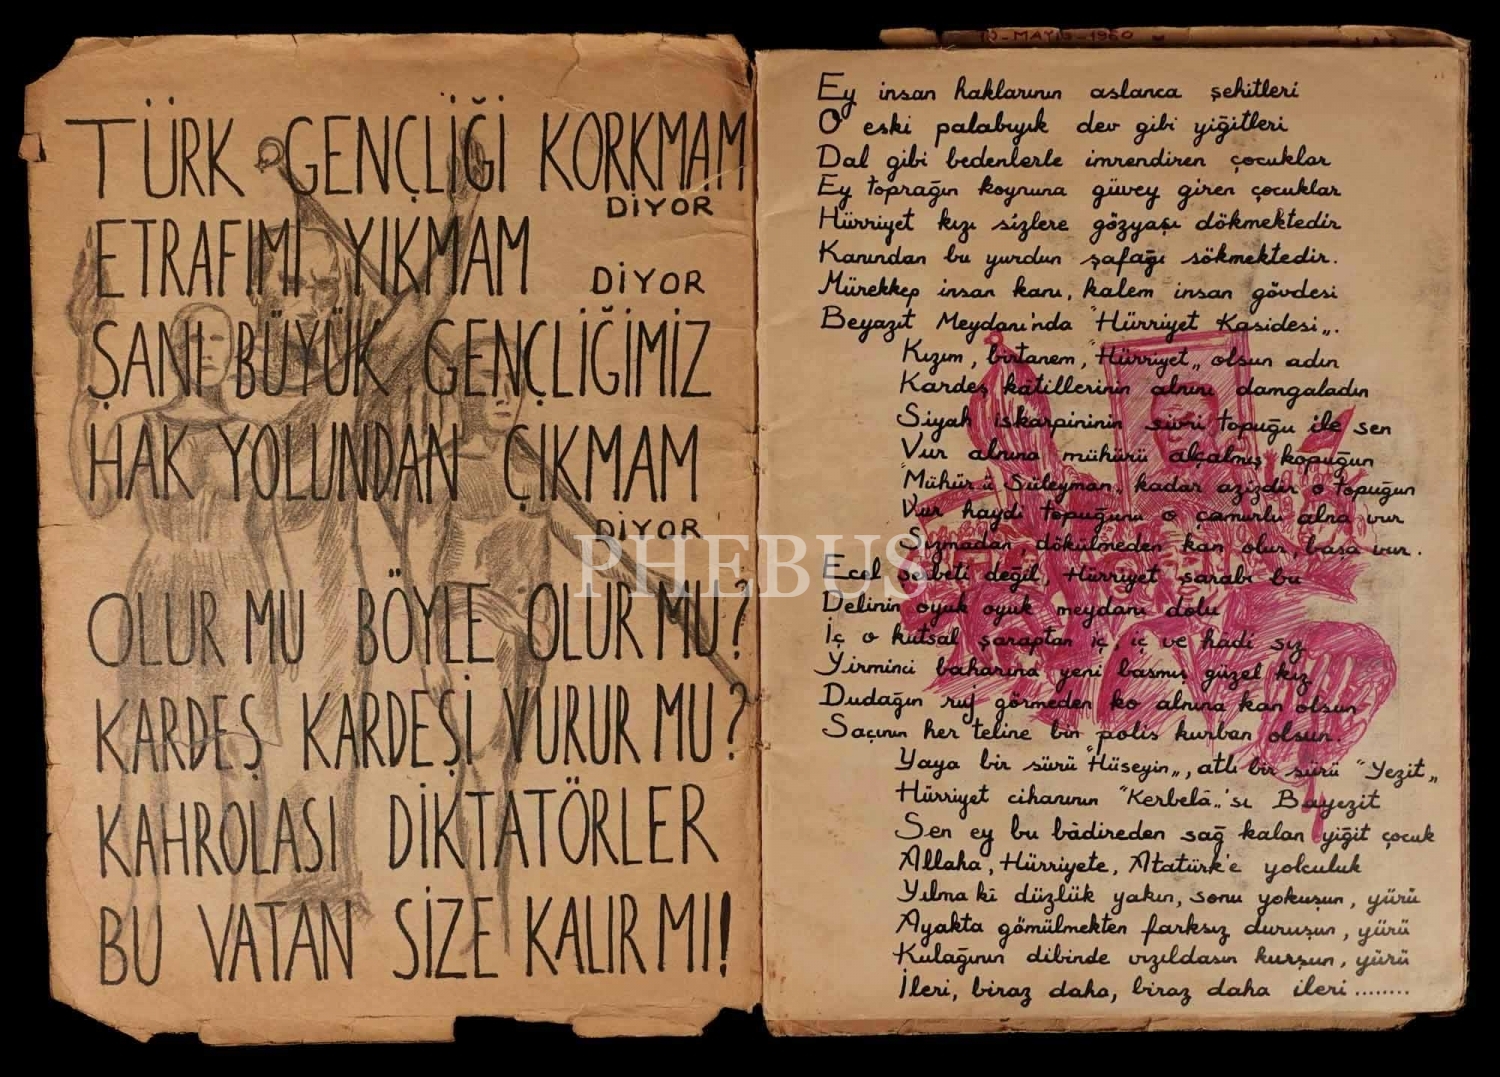 TÜRK GENÇLİĞİ KORKMAM
DİYOR
ETRAFIMI YIKMAM DİYOR
ŞANI BÜYÜK GENÇLİĞİMİZ
HAK YOLUNDAN ÇIKMAM
DİYOR
OLUR MU BÖYLE OLUR MU?
KARDEŞ KARDEŞİ VURUR MU?
KAHROLASI DİKTATÖRLER
BU VATAN SİZE KALIR MI!
MAYIS-1960
Ey insan haklarının aslanca şehitleri
O eski palabıyık dev gibi yiğitleri
Dal gibi bedenlerle imrendiren çocuklar
Ey toprağın koynuna güvey giren çocuklar
Hürriyet kızı sizlere gözyaşı dökmektedir
Kanından bu yurdun şafağı sökmektedir.
Mürekkep insan kanı, kalem insan gövdesi
Beyazıt Meydanı'nda "Hürriyet Kasidesi„.
Kızım, birtanem, "Hürriyet„ olsun adın
Kardeş kâtillerinin alnını damgaladın
Siyah iskarpininin sivri topuğu ile sen
Vur alnına mühürü alçalmış köpuğun
"Mühür-ü Süleyman„ kadar azizdir o topuğun
Vur haydi topuğunu o çamurlu alna vur
Sızmadan, dökülmeden kan olur, başa vur.
Ecel şerbeti değil, Hürriyet şarabı bu
Delinin oyuk oyuk meydanı dolu
İç o kutsal şaraptan iç, iç ve hadi sız
Yirminci baharına yeni basmış güzel kız
Dudağın ruj görmeden ko alnına kan olsun
Saçının her teline bin polis kurban olsun.
Yaya bir sürü "Hüseyin„, atlı bir sürü "Yezit„
Hürriyet cihanının "Kerbelâ„'sı Bayezit
Sen ey bu bâdireden sağ kalan yiğit çocuk
Allaha, Hürriyete, Atatürk'e yolculuk
Yılma ki düzlük yakın, sonu yokuşun, yürü
Ayakta gömülmekten farksız duruşun, yürü
Kulağının dibinde vızıldasın kurşun, yürü
İleri, biraz daha, biraz daha ileri........
PHEBUS